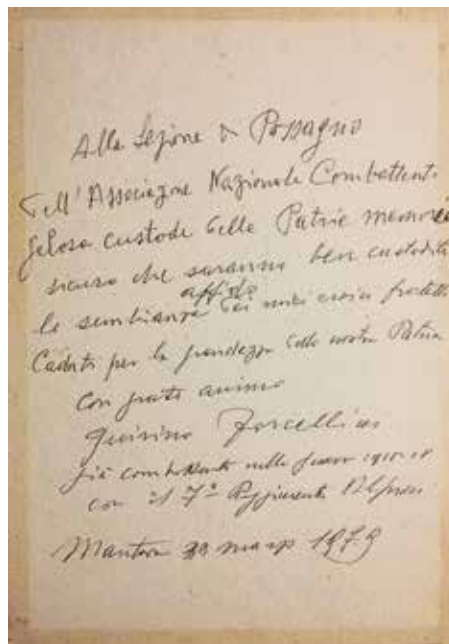 Alla Sezione di Possagno
dell'Associazione Nazionale Combattenti
gelosa custode delle Patrie memorie
sicuro che saranno ben custodite
affido
le sembianze dei miei eroici fratelli
Caduti per la grandezza della nostra Patria
con grato animo
Quirino Forcellini
già combattente nella guerra
con il 7° Reggimento Alpini
Mantova marzo 1979